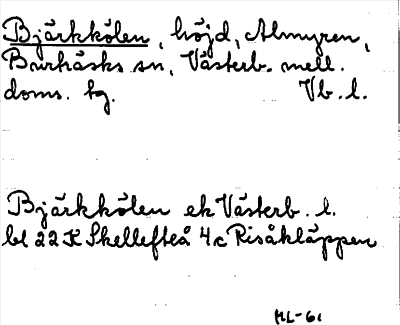 Bjärkkölen, höjd, Almyren,
Burträsks sn, Västerb. mell.
doms. bg. Vb. l.
Bjärkkölen ek Västerb. l.
bl 22 K Skellefteå 4c Risåkläppen
ML-61